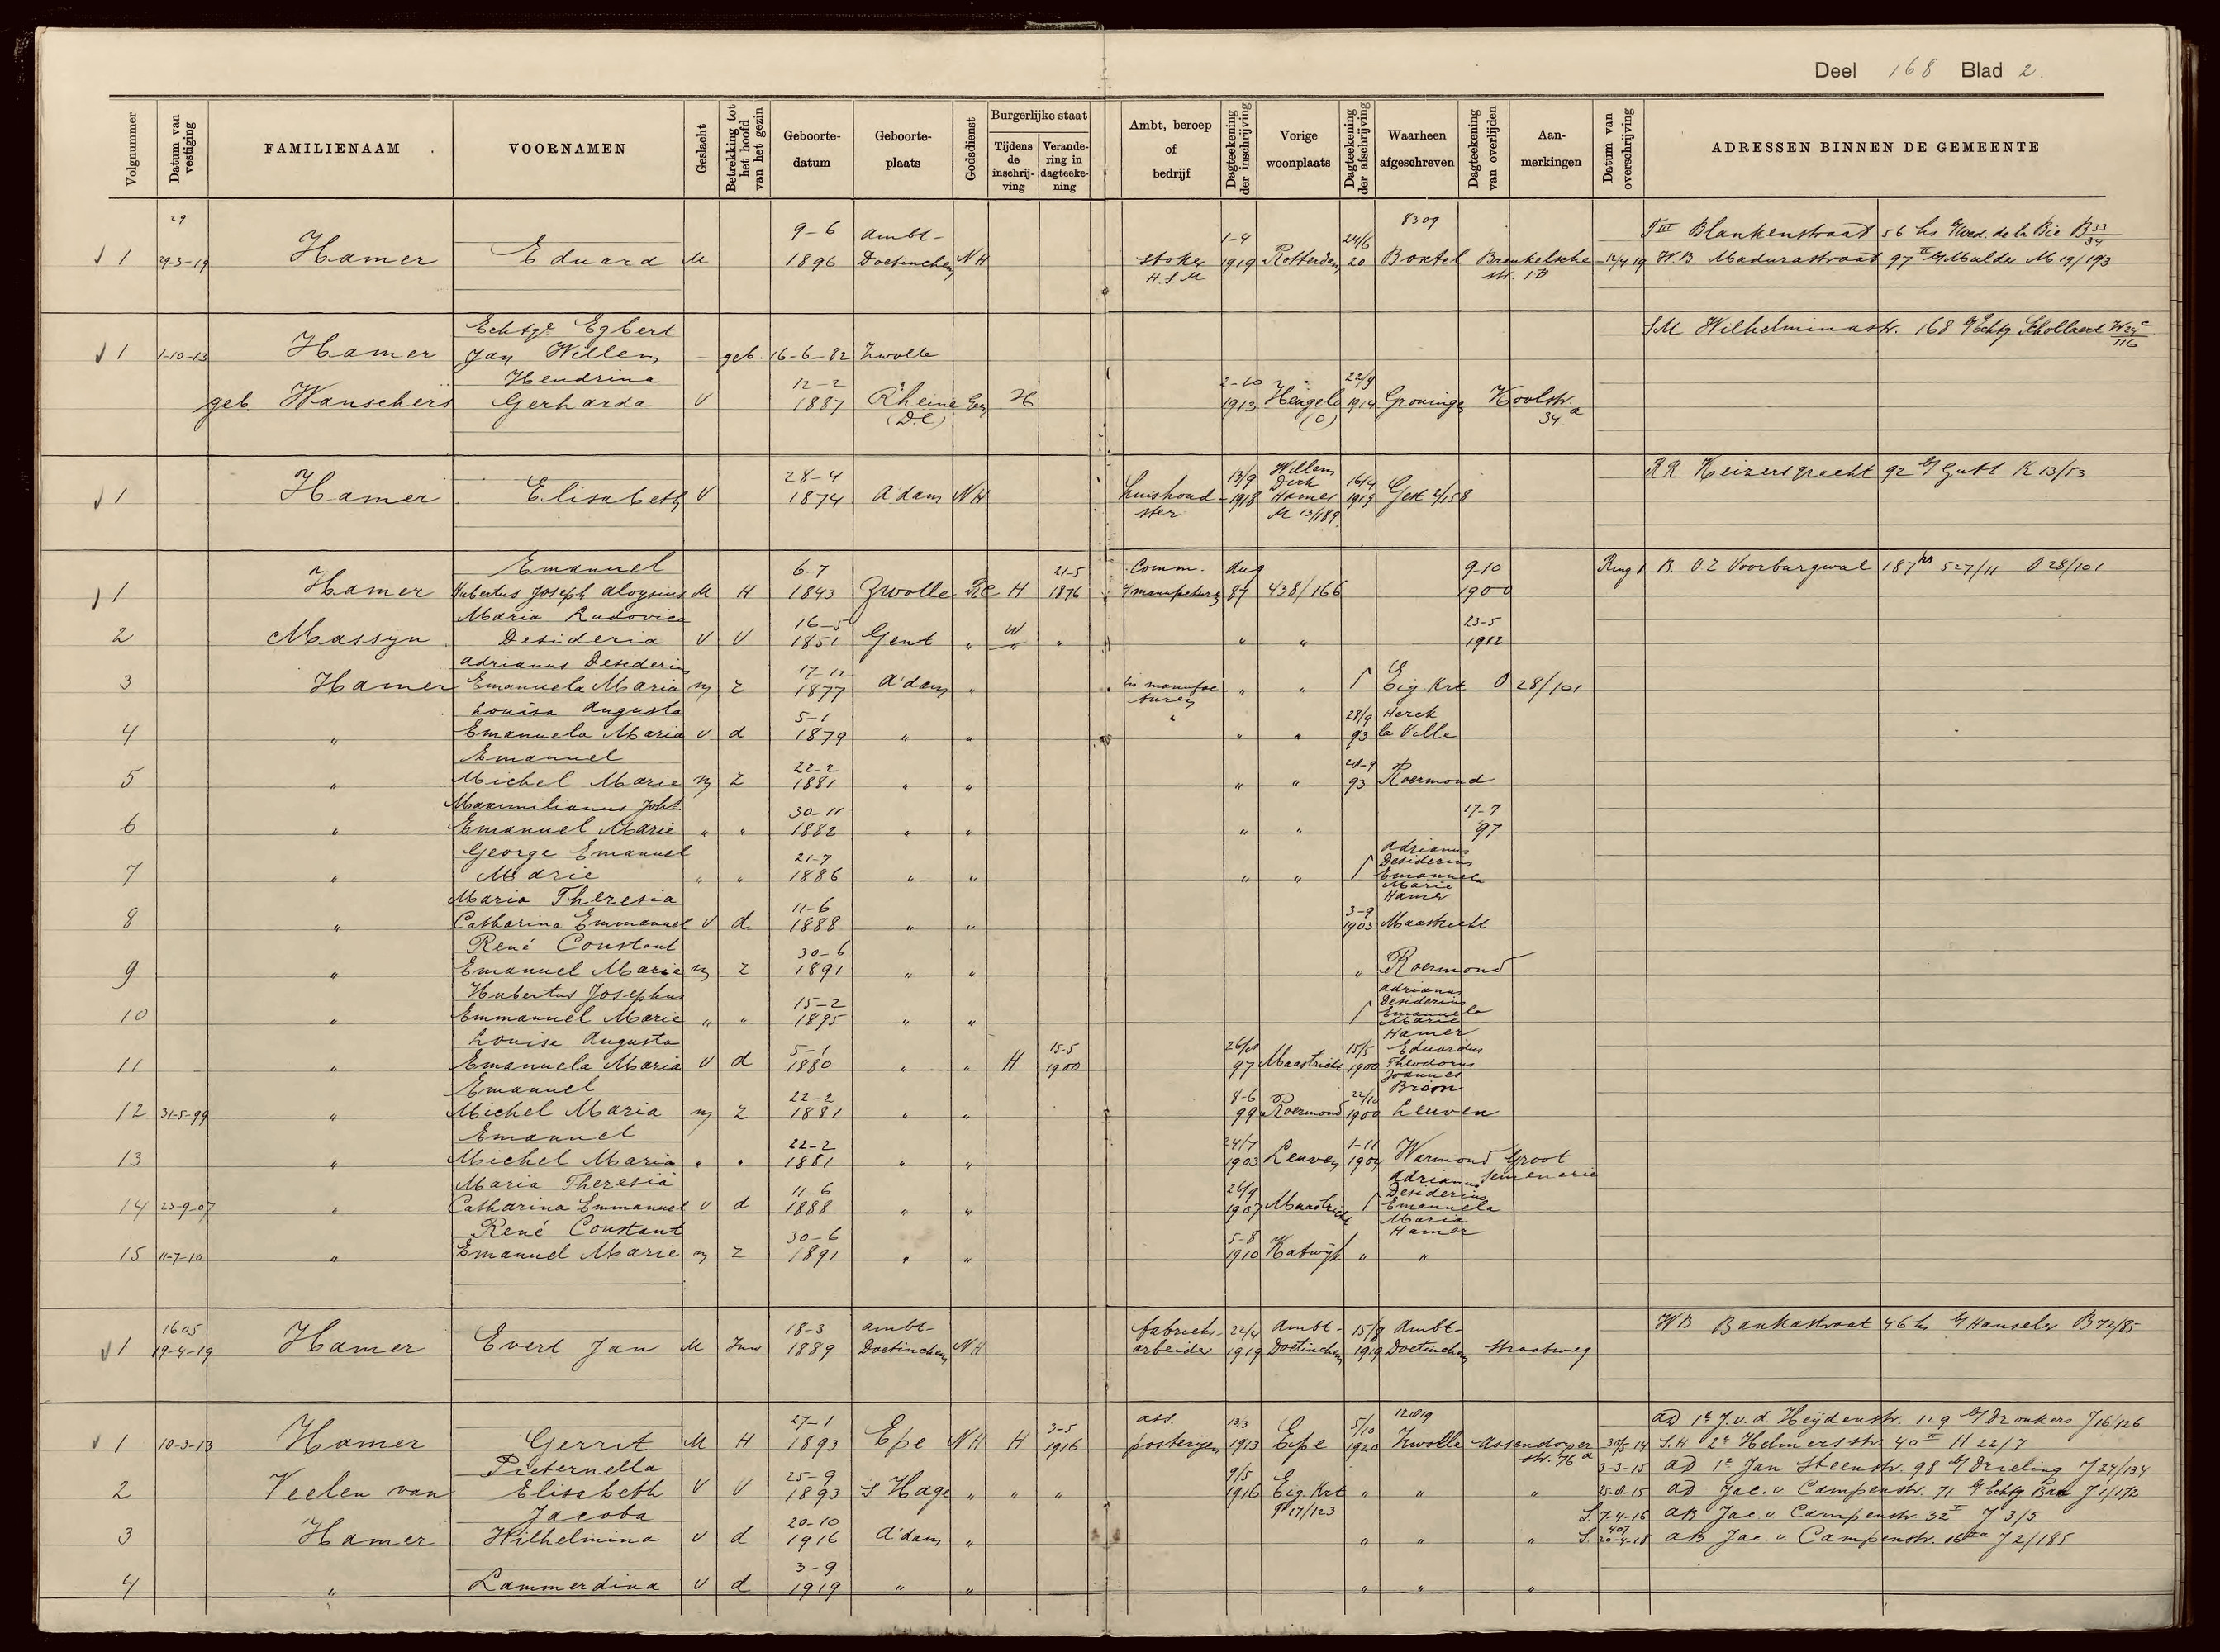 Deel 168 Blad 2.
Volgnummer Datum van vestiging FAMILIENAAM VOORNAMEN Geslacht Betrekking tot het hoofd van het gezin Geboorte-datum Geboorte-plaats Godsdienst Burgerlijke staat Tijdens de inschrijving Verandering in dagteekening Ambt, beroep of bedrijf Dagteekening der inschrijving Vorige woonplaats Dagteekening der afschrijving Waarheen afgeschreven Dagteekening van overlijden Aanmerkingen Datum van overschrijving ADRESSEN BINNEN DE GEMEENTE
29 9-6 Ambt- 1-4 24/6 8309 Blankenstraat 56 hs B 33/34
1 29-3-19 Hamer Eduard M 1896 Doetinchem NH stoker 1919 Rotterdam 20 Boxtel 12/4 19 W.B. Madurastraat 97 II Mulder M 19/193
H.S.M str. 18
Echtge Egbert S.M Wilhelminastr. 168 Echtg Schollaert
1 1-10-13 Hamer Jan Willem - geb. 16-6-82 Zwolle 116
Hendrina 12-2 2-10 22/9
geb Wanschers Gerharda V 1887 Rheine H 1913 Hengelo 1914 Groningen Koolstr.
(O) 34 a
28-4 13/9 Willem 16/4 RR Keizersgracht 92 K 13/53
1 Hamer Elisabeth V 1874 A'dam NH huishoud- 1918 Dirk Hamer 1919 Gez 2/158
ster M 13/189
Emanuel 6-7 21-5 Comm. Aug 9-10 B. O Z Voorburgwal 187 hs 527/11 O 28/101
1 Hamer Hubertus Joseph Aloysius M H 1843 Zwolle RC H 1876 87 438/166 1900
Maria Ludovica 16-5 W 23-5
2 Massyn Desideria V V 1851 Gent " " " " " 1912
Adrianus Desiderius 17-12
3 Hamer Emanuela Maria m z 1877 A'dam " in manufac- " " Eig Krt O 28/101
turen
Louisa Augusta 5-1 " 28/9 Herck
4 " Emanuela Maria v d 1879 " " " " 93 la Ville
Emanuel 22-2
5 " Michel Marie m z 1881 " " " " 93 Roermond
Maximilianus Johs. 30-11 17-7
6 " Emanuel Marie " " 1882 " " " " 97
George Emanuel 21-7 Adrianus Desiderius
7 " Marie " " 1886 " " " " Emanuela Marie Hamer
Maria Theresia 11-6 3-9
8 " Catharina Emmanuel v d 1888 " " 1903 Maastricht
René Constant 30-6
9 " Emanuel Marie m z 1891 " " " Roermond
Hubertus Josephus 15-2 Adrianus Desiderius
10 " Emmanuel Marie " " 1895 " " Emanuela Marie Hamer
Louise Augusta 5-1 15-5 15/5 Eduardus
11 " Emanuela Maria v d 1880 " " H 1900 97 Maastricht 1900 Theodorus Joannes
Emanuel 22-2 8-6 22/10
12 31-5-99 " Michel Maria m z 1881 " " 99 Roermond 1900 Leuven
Emanuel 22-2 24/7 1-11
13 " Michel Maria " " 1881 " " 1903 Leuven 1904 Warmond Groot
Maria Theresia 11-6 26/9 Adrianus Desiderius
14 23-9-07 " Catharina Emmanuel v d 1888 " " 1907 Maastricht Emanuela Maria Hamer
René Constant 30-6 5-8
15 11-7-10 " Emanuel Marie m z 1891 " " 1910 Katwijk " "
1605 18-3 Ambt- fabrieks- 22/4 Ambt- 15/8 Ambt- WB Bankastraat 46 hs Hanseler B 72/85
1 19-4-19 Hamer Evert Jan M Inw 1889 Doetinchem NH arbeider 1919 Doetinchem 1919 Doetinchem straatweg
27-1 3-5 ass. 13/3 5/10 aD 1e J. v. d. Heijdenstr. 129 Dronkers J 16/126
1 10-3-13 Hamer Gerrit M H 1893 Epe NH H 1916 posterijen 1913 Epe 1920 Zwolle Assendorper 30/5 14 S.H 2e Helmersstr. 40 II H 22/7
Pieternella 25-9 9/5 str. 76 a 3-3-15 aD 1e Jan Steenstr. 98 Drieling J 24/134
2 Veelen van Elisabeth V V 1893 s Hage " " " 1916 Eig. Krt " " " 25-8-15 aD Jac. v. Campenstr. 71 Echtg Bax J 1/172
Jacoba 20-10 17/123 S. 7-4-16 aB Jac v. Campenstr. 32 I J 3/5
3 Hamer Wilhelmina v d 1916 A'dam " " " " S. 20-4-18 aB Jac. v. Campenstr. J 2/185
3-9
4 " Lammerdina v d 1919 " " " " "